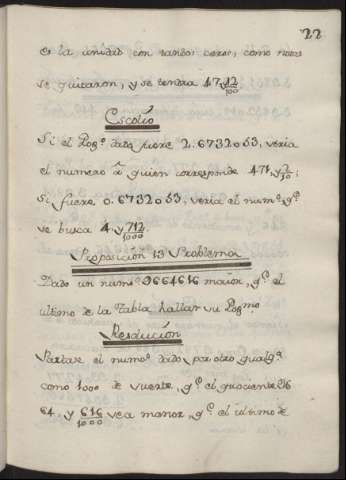 22
es la unidad con tantos ceros, como notas
se quitaron, y se tendra 47,12/100
Escolio
Si el Log.º dado fuere 2.6732053, seria
el numero à quien corresponde 471,2/10;
Si fuere 0.6732053, seria el num.º q.e
se busca 4, y 712/1000
Proposicion 13 Problema
Dado un num.º 9664616 maior, q.e el
ultimo de la Tabla hallar su Log.mo
Resolucion
Partase el num.º dado por otro qualq.a
como 1000 de suerte, q.e el quociente 96
64, y 616/1000 sea menor, q.e el ultimo de